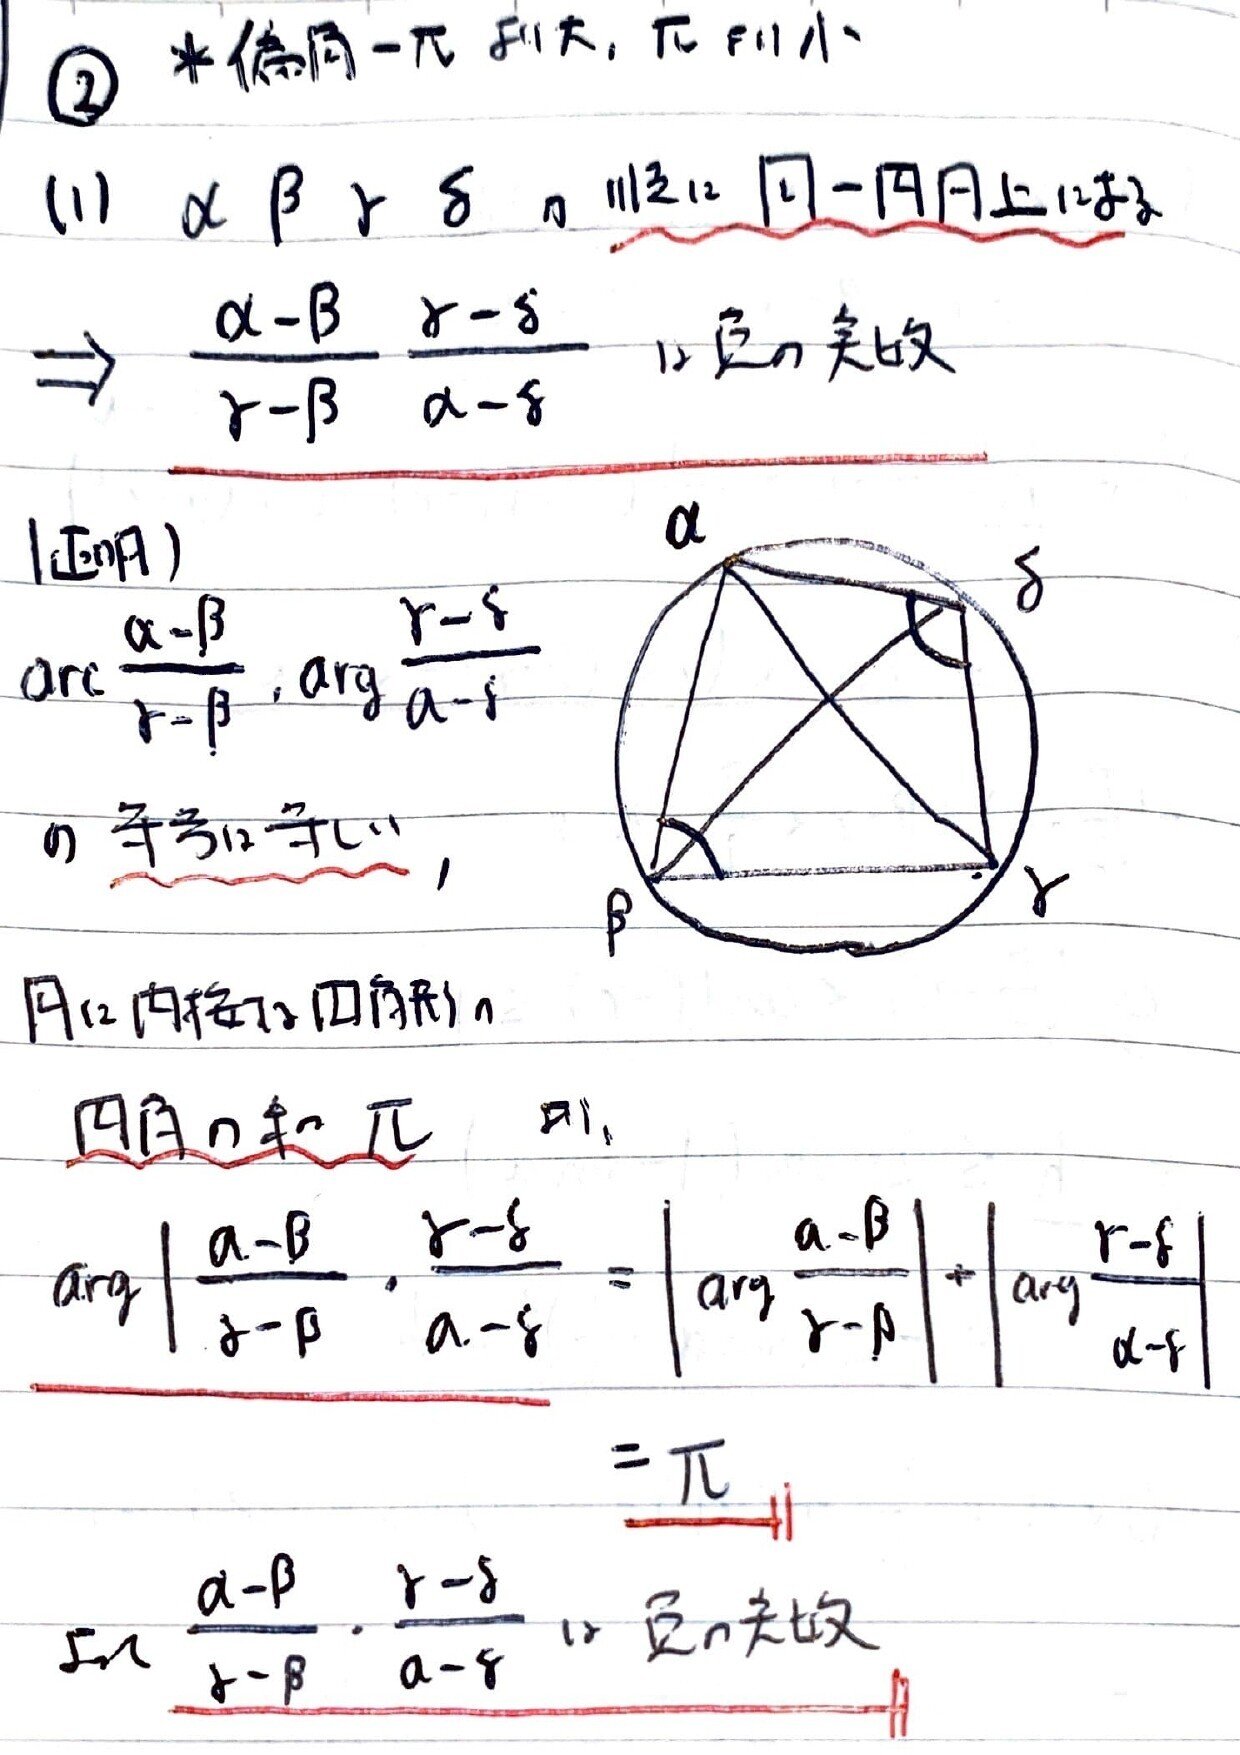 ② *偏角-π より大, π より小
(1) α β γ δ が 順に 同一円周上にある
⇒ (α-β)/(γ-β) (γ-δ)/(α-δ) は負の実数
(証明)
α
δ
arc (α-β)/(γ-β) , arg (γ-δ)/(α-δ)
の 符号は等しい,
β
γ
円に内接する四角形の
対角の和 π より,
arg | (α-β)/(γ-β) · (γ-δ)/(α-δ) = | arg (α-β)/(γ-β) | + | arg (γ-δ)/(α-δ) |
= π
よって (α-β)/(γ-β) · (γ-δ)/(α-δ) は 負の実数